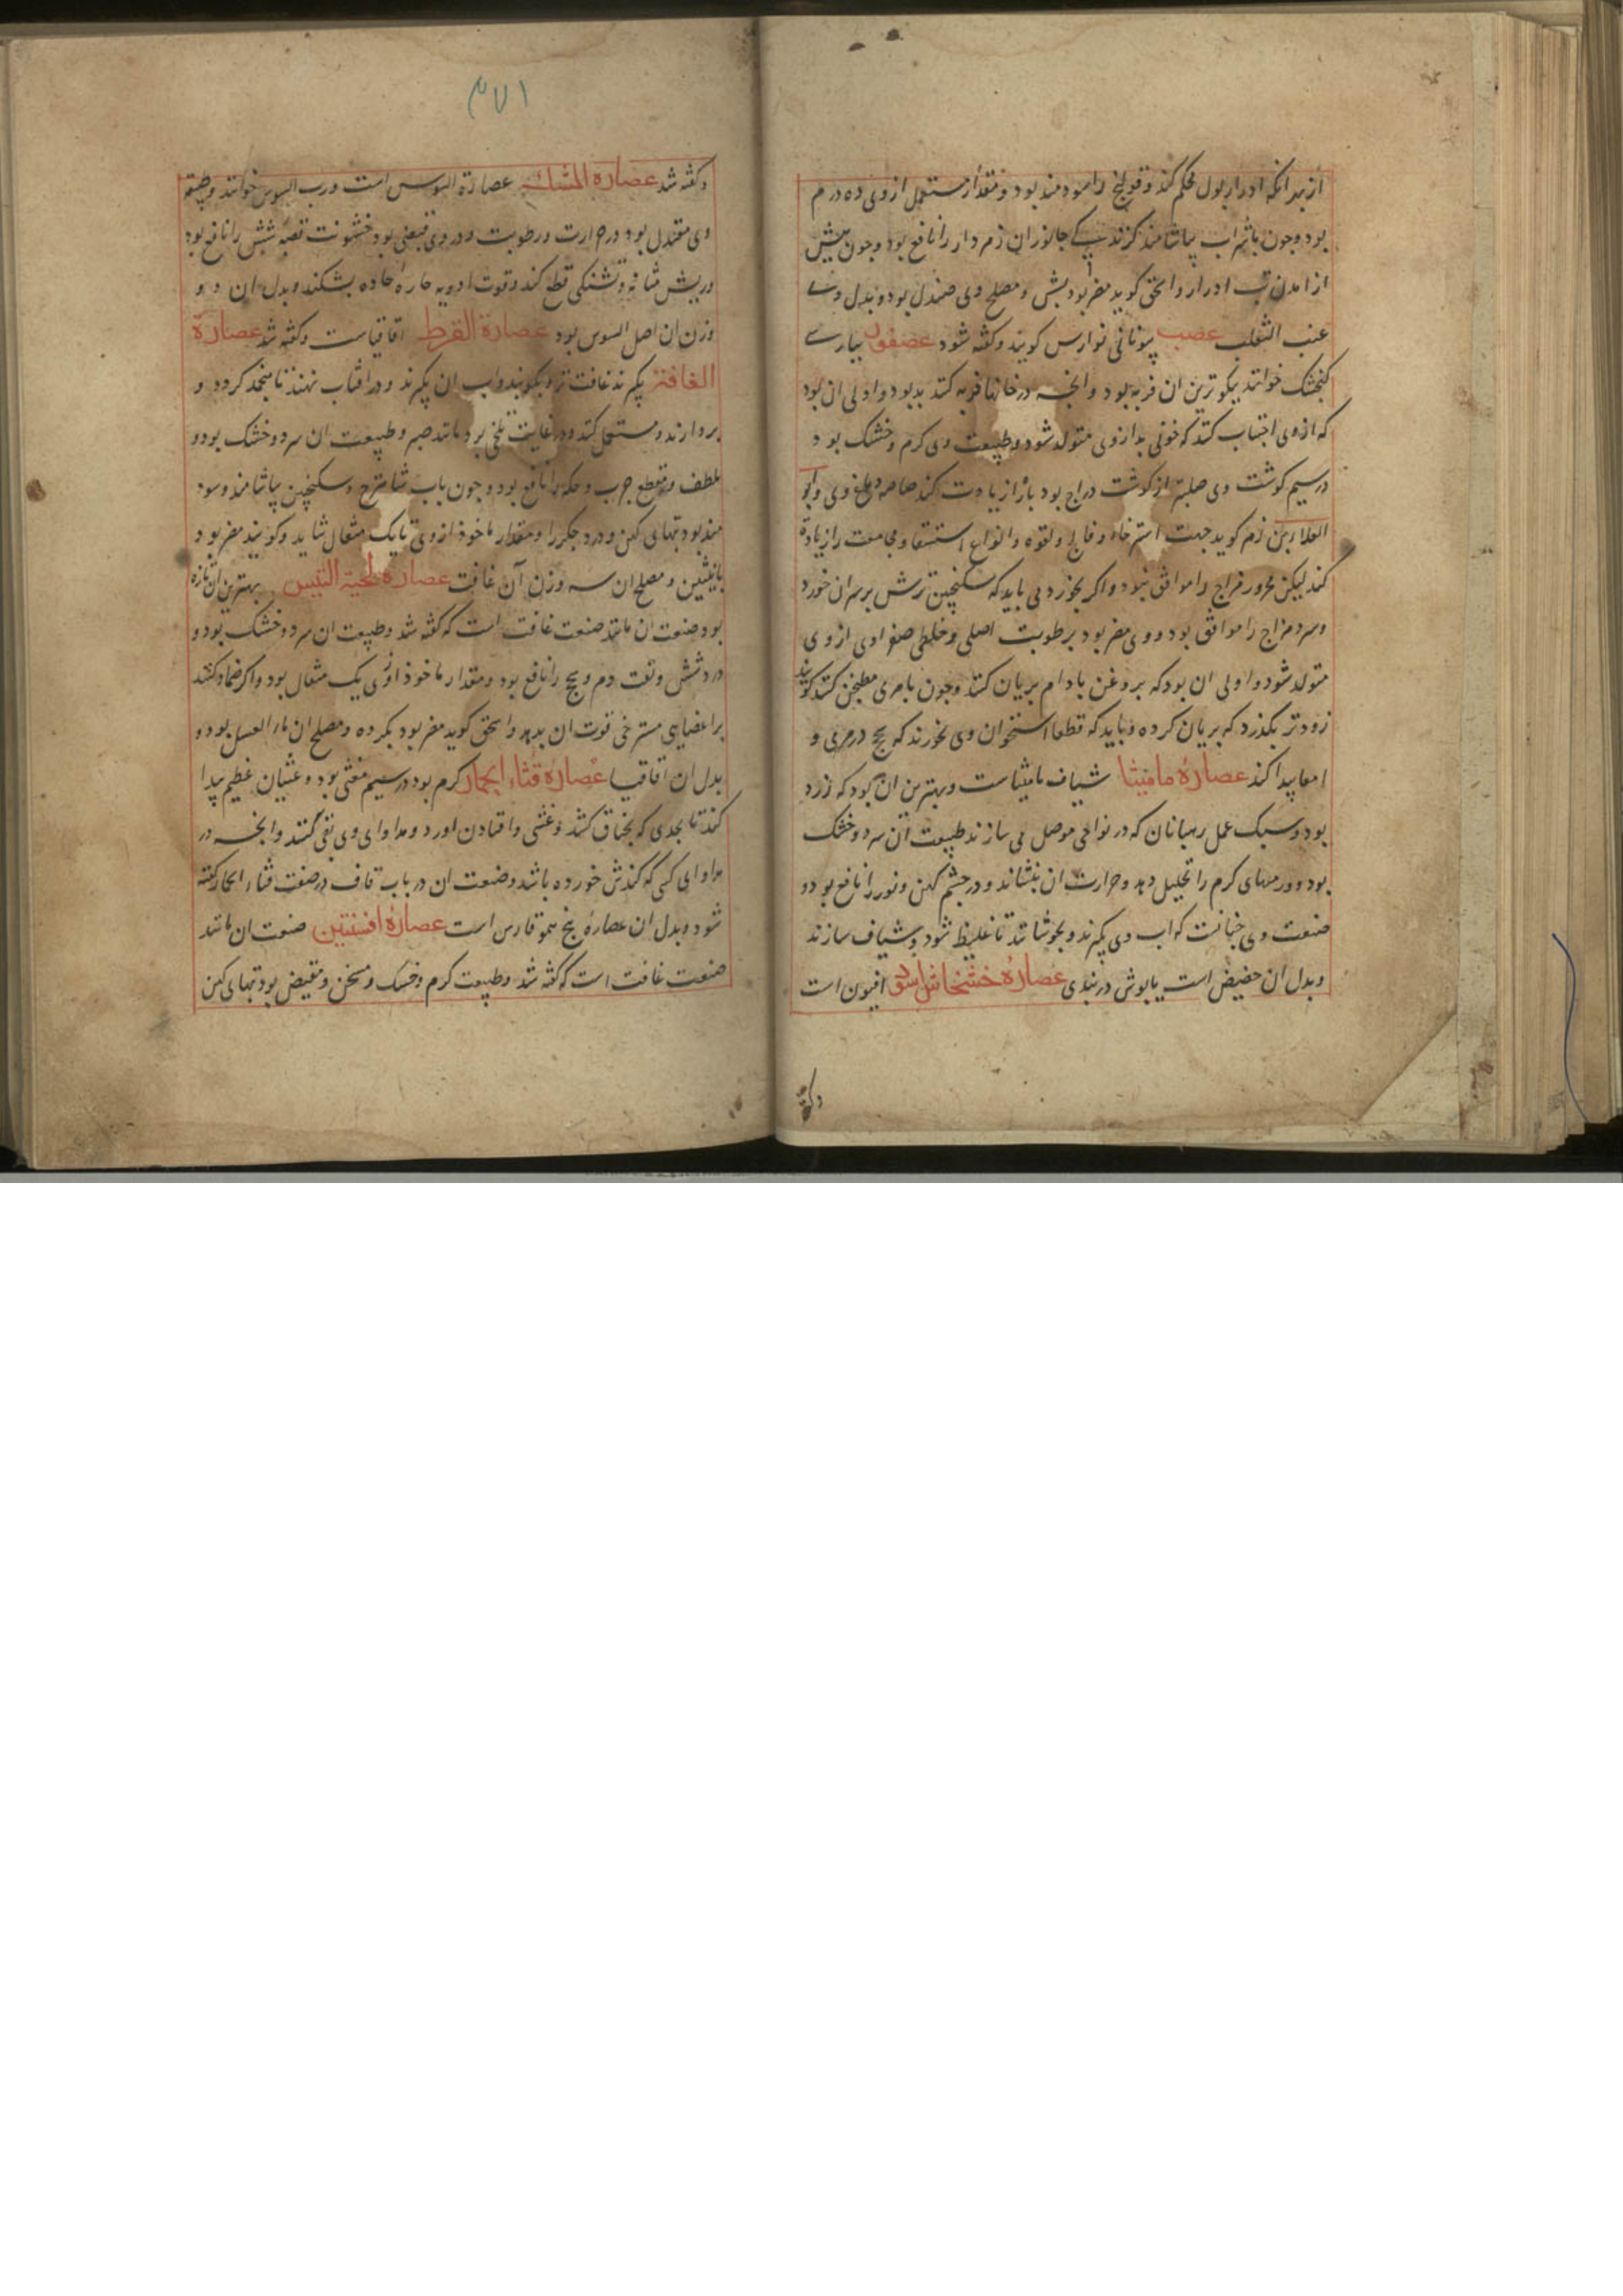 از بهر انکه ادرار بول محکم کند و قولنج را سودمند بود و مقدار مستعمل از وی ده درم
بود وجون با شراب بیاشامند کزندیکی جانوران زهردار را نافع بود وجون پیش
از امدن تب ادرار واسحق کوید مضر بود بشش و مصلح وی صندل بود و بدل وی
عنب الثعلب عصب بیونانی نوارس کویند وکفته شود عصفور بپارسی
کنجشک خوانند نیکوترین ان فربه بود وانجه در خانها فربه کنند بد بود و اولی ان بود
که ازوی اجتناب کنند که خونی بد ازوی متولد شود وطبیعت وی کرم وخشک بود و
در سیم کوشت وی صلبتر از کوشت دراج بود باه را زیادت کند خاصه دماغ وی وابو
العلا بن زهر کوید جهت استرخاء وفالج ولقوه وانواع استسقا ومجامعت را زیادة
کند لیکن محرور مزاج را موافق نبود واکر بخورد می باید که سکنجبین ترش بر سر ان خورد
وسرد مزاج را موافق بود و وی مضر بود برطوبت اصلی وخلطی صفراوی ازوی
متولد شود و اولی ان بود که بروغن بادام بریان کنند وجون بامری مطبخن کنند کویند
زودتر بکذرد که بریان کرده و باید که قطعا استخوان وی نخورند که سحج در مری و
امعا پیدا کند عصارهٔ مامیثا شیاف مامیثاست وبهترین ان بود که زرد
بود وسبک عمل رهبانان که در نواحی موصل می سازند طبیعت آن سرد وخشک
بود و ورمهای کرم را تحلیل دهد وحرارت ان بنشاند ودرد چشم کهن ونور را نافع بود و
صنعت وی جنانست که اب وی بکیرند وبجوشانند تا غلیظ شود وشیاف سازند
و بدل ان حضیض است یا بوش دربندی عصارهٔ خشخاش اسود افیون است
وکفته
۳۷۱
وکفته شد عصارة المشک عصارة السوس است ورب السوس خوانند وطبیعة
وی معتدل بود در حرارت ورطوبت ودر وی قبضی بود خشونت قصبه شش را نافع بود
وریش مثانه وتشنکی قطع کند وقوت ادویه حاره حاده بشکند وبدل ان دو
وزن ان اصل السوس بود عصارة القرظ اقاقیاست وکفته شد عصارة
الغافت بکیرند غافت تر وبکوبند واب ان بکیرند ودر افتاب نهند تا منجمد کردد و
بردارند ومستعمل کنند ودر غایت تلخی بود مانند صبر وطبیعت ان سرد وخشک بود و
ملطف ومقطع جرب وحکه را نافع بود وجون باب شاهترج وسکنجبین بیاشامند وسود
مند بود تبهای کهن و درد جکر را ومقدار ماخوذ ازوی تا یک مثقال شاید وکویند مضر بود
بانثیین ومصلح ان سه وزن آن غافت عصارهٔ لحیة التیس بهترین ان تازه
بود صنعت ان مانند صنعت غافت است که کفته شد وطبیعت ان سرد وخشک بود و
درد شش ونفث دم وسحج را نافع بود ومقدار ماخوذ ازوی یک مثقال بود واکر ضماد کنند
بر اعضای مسترخی قوت ان بدهد واسحق کوید مضر بود بکرده ومصلح ان ماء العسل بود و
بدل ان اقاقیا عصارهٔ قثاء الحمار کرم بود در سیم مغثی بود و غثیان عظیم پیدا
کند تا بحدی که بخناق کشد وغشی وافتادن اورد ومداوای وی بقی کنند وانجه در
مداوای کسی که کندش خورده باشد وصنعت ان در باب قاف در صنعت قثاء الحمار کفته
شود وبدل ان عصارهٔ بیخ هموقارس است عصارهٔ افسنتین صنعت ان مانند
صنعت غافت است که کفته شد وطبیعت کرم وخشک ومسخن ومقبض بود تبهای کهن